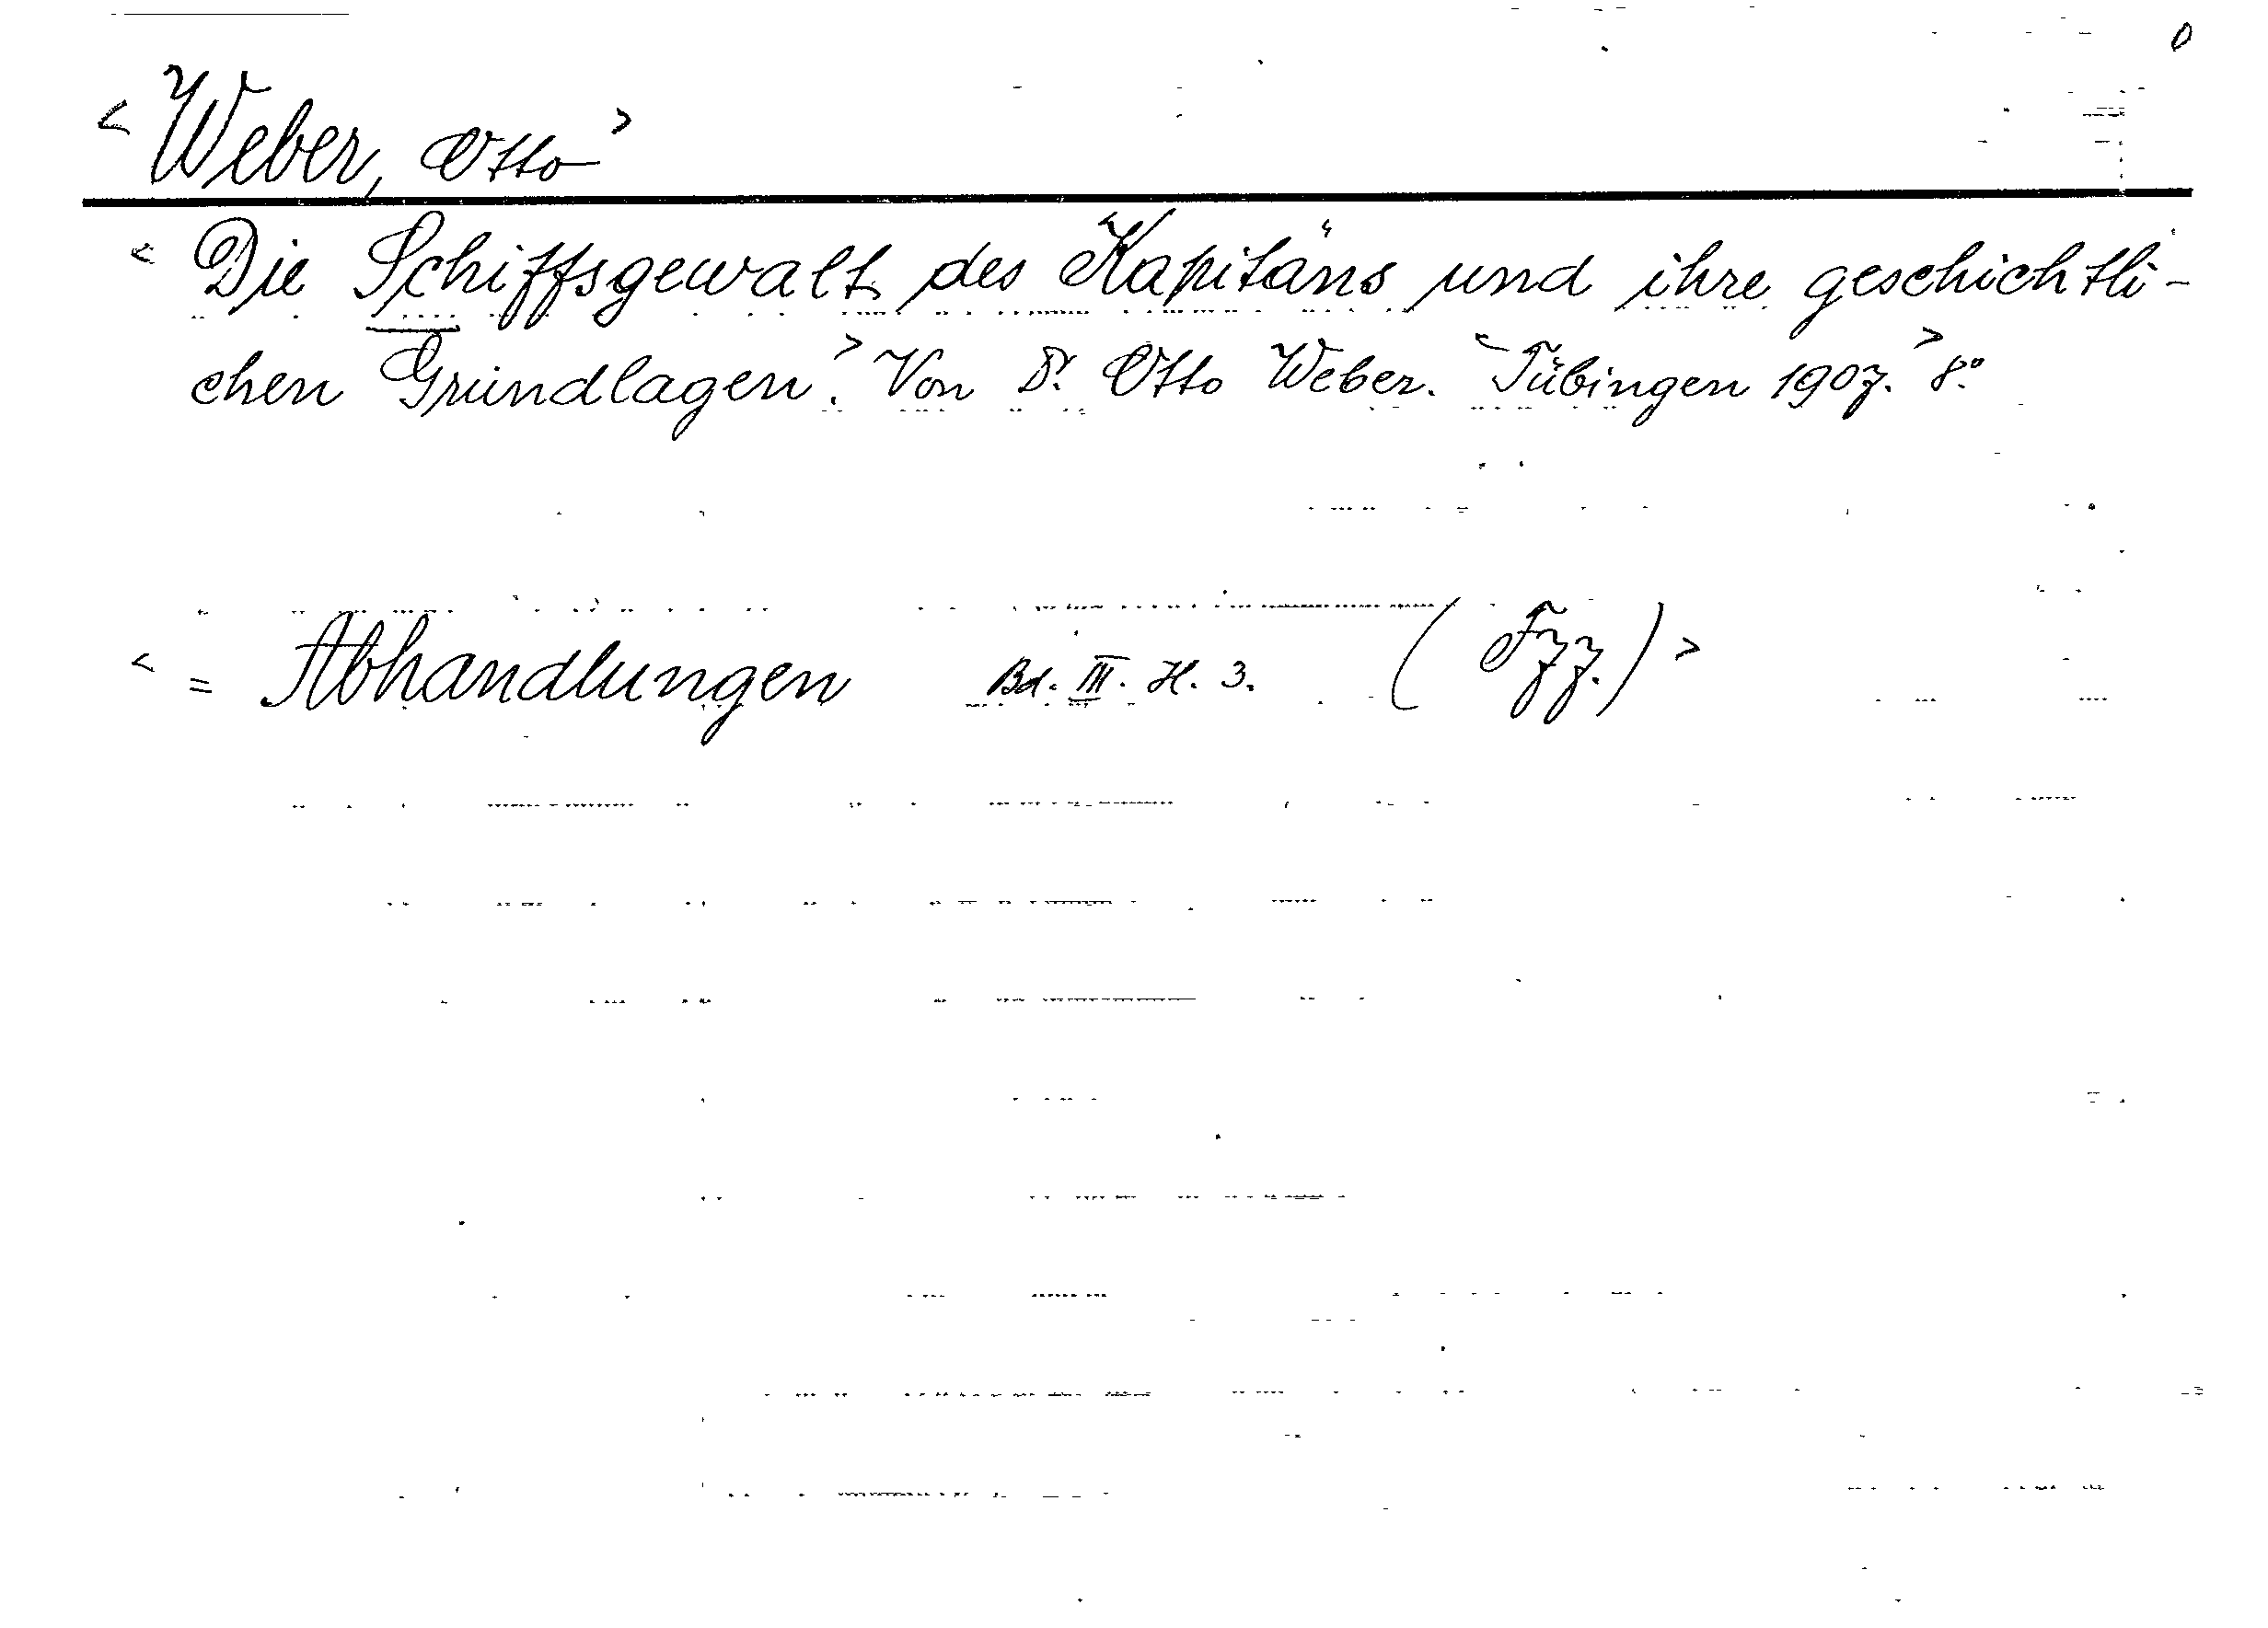 0
< Weber, Otto >
< Die Schiffsgewalt des Kapitäns und ihre geschichtli-
chen Grundlagen. > Von Dr. Otto Weber. < Tübingen 1907. > 8.°
< = Abhandlungen Bd. III. H. 3. (Fzz.) >